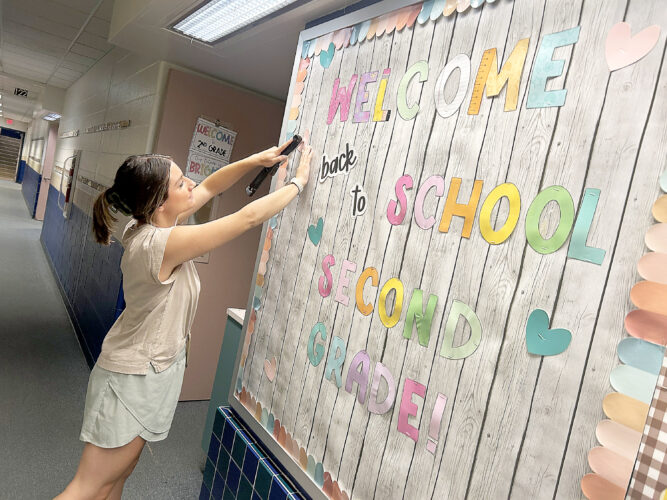 WELCOME
back
to
SCHOOL
SECOND
GRADE!
WELCOME
2ND GRADE
122